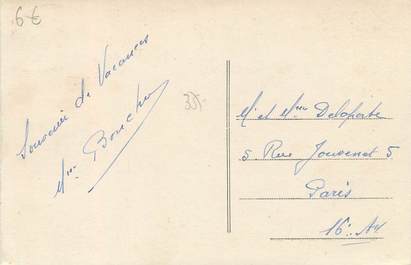 6€
Souvenir de Vacances
Mme Boucher
35-
Mr et Mme Delaporte
5 Rue Jouvenet 5
Paris
16e Ar